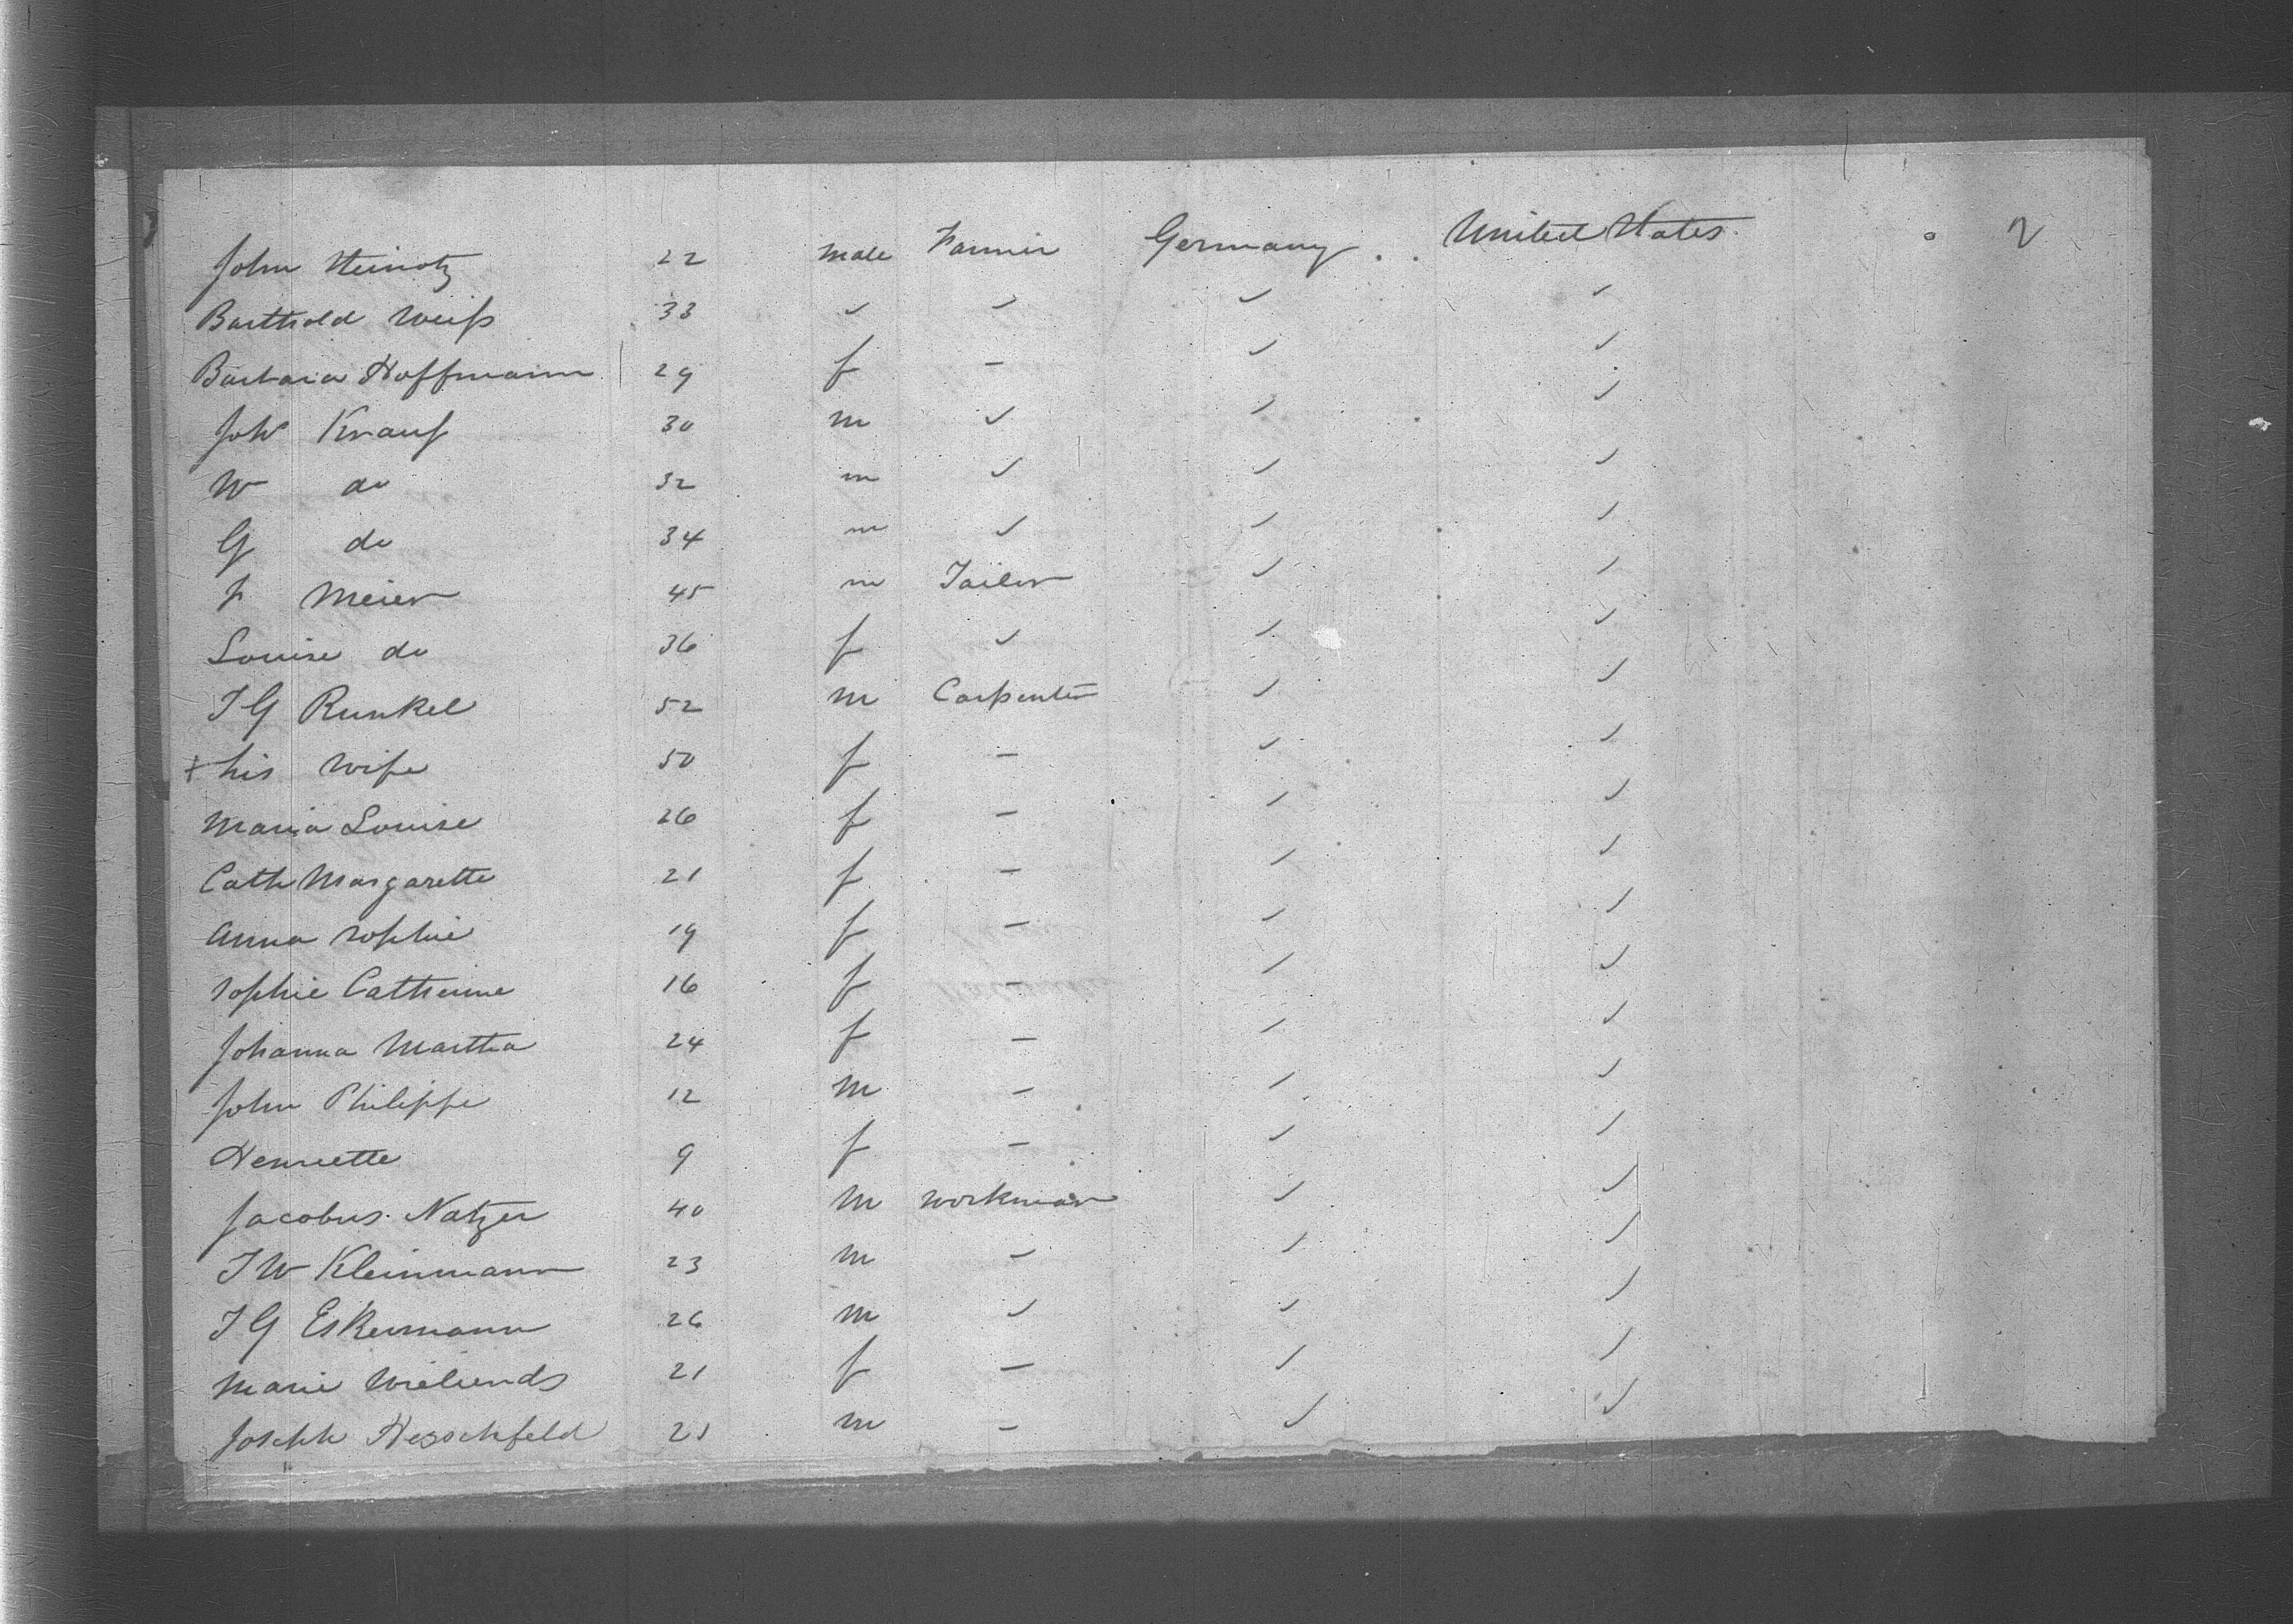 John Heinotz 22 male Farmer Germany United States 2
Barthold Weiß 33 ✓ ✓ ✓ ✓
Barbara Hoffmann 29 f – ✓ ✓
Joh Knauf 30 m ✓ ✓ ✓
W do 32 m ✓ ✓ ✓
G do 34 m ✓ ✓ ✓
J Meier 45 m Tailor ✓ ✓
Louise do 36 f ✓ ✓ ✓
J G Runkel 52 m Carpenter ✓ ✓
+ his wife 50 f – ✓ ✓
Maria Louise 26 f – ✓ ✓
Cath Margarette 21 f – ✓ ✓
Anna Sophie 19 f – ✓ ✓
Sophie Catherine 16 f – ✓ ✓
Johanna Martha 24 f – ✓ ✓
John Philippe 12 m – ✓ ✓
Henriette 9 f – ✓ ✓
Jacobus Natzer 40 m workman ✓ ✓
J W Kleinmann 23 m – ✓ ✓
J G Eskermann 26 m ✓ ✓ ✓
Marie 21 f – ✓ ✓
Joseph Hesschfeld 21 m – ✓ ✓